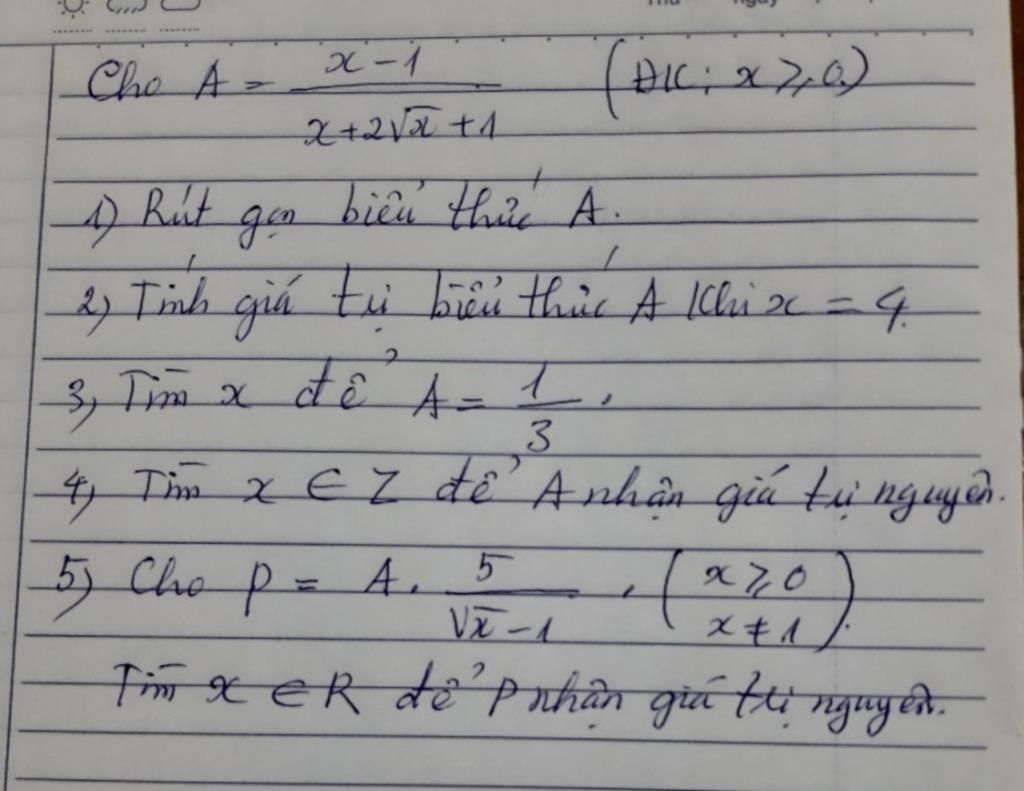 Thứ ngày
Cho A = \frac{x-1}{x+2\sqrt{x}+1} (ĐK: x ≥ 0)
1) Rút gọn biểu thức A.
2) Tính giá trị biểu thức A khi x = 4.
3) Tìm x để A = \frac{1}{3}.
4) Tìm x ∈ Z để A nhận giá trị nguyên.
5) Cho P = A. \frac{5}{\sqrt{x}-1}. (x ≥ 0 x ≠ 1).
Tìm x ∈ R để P nhận giá trị nguyên.